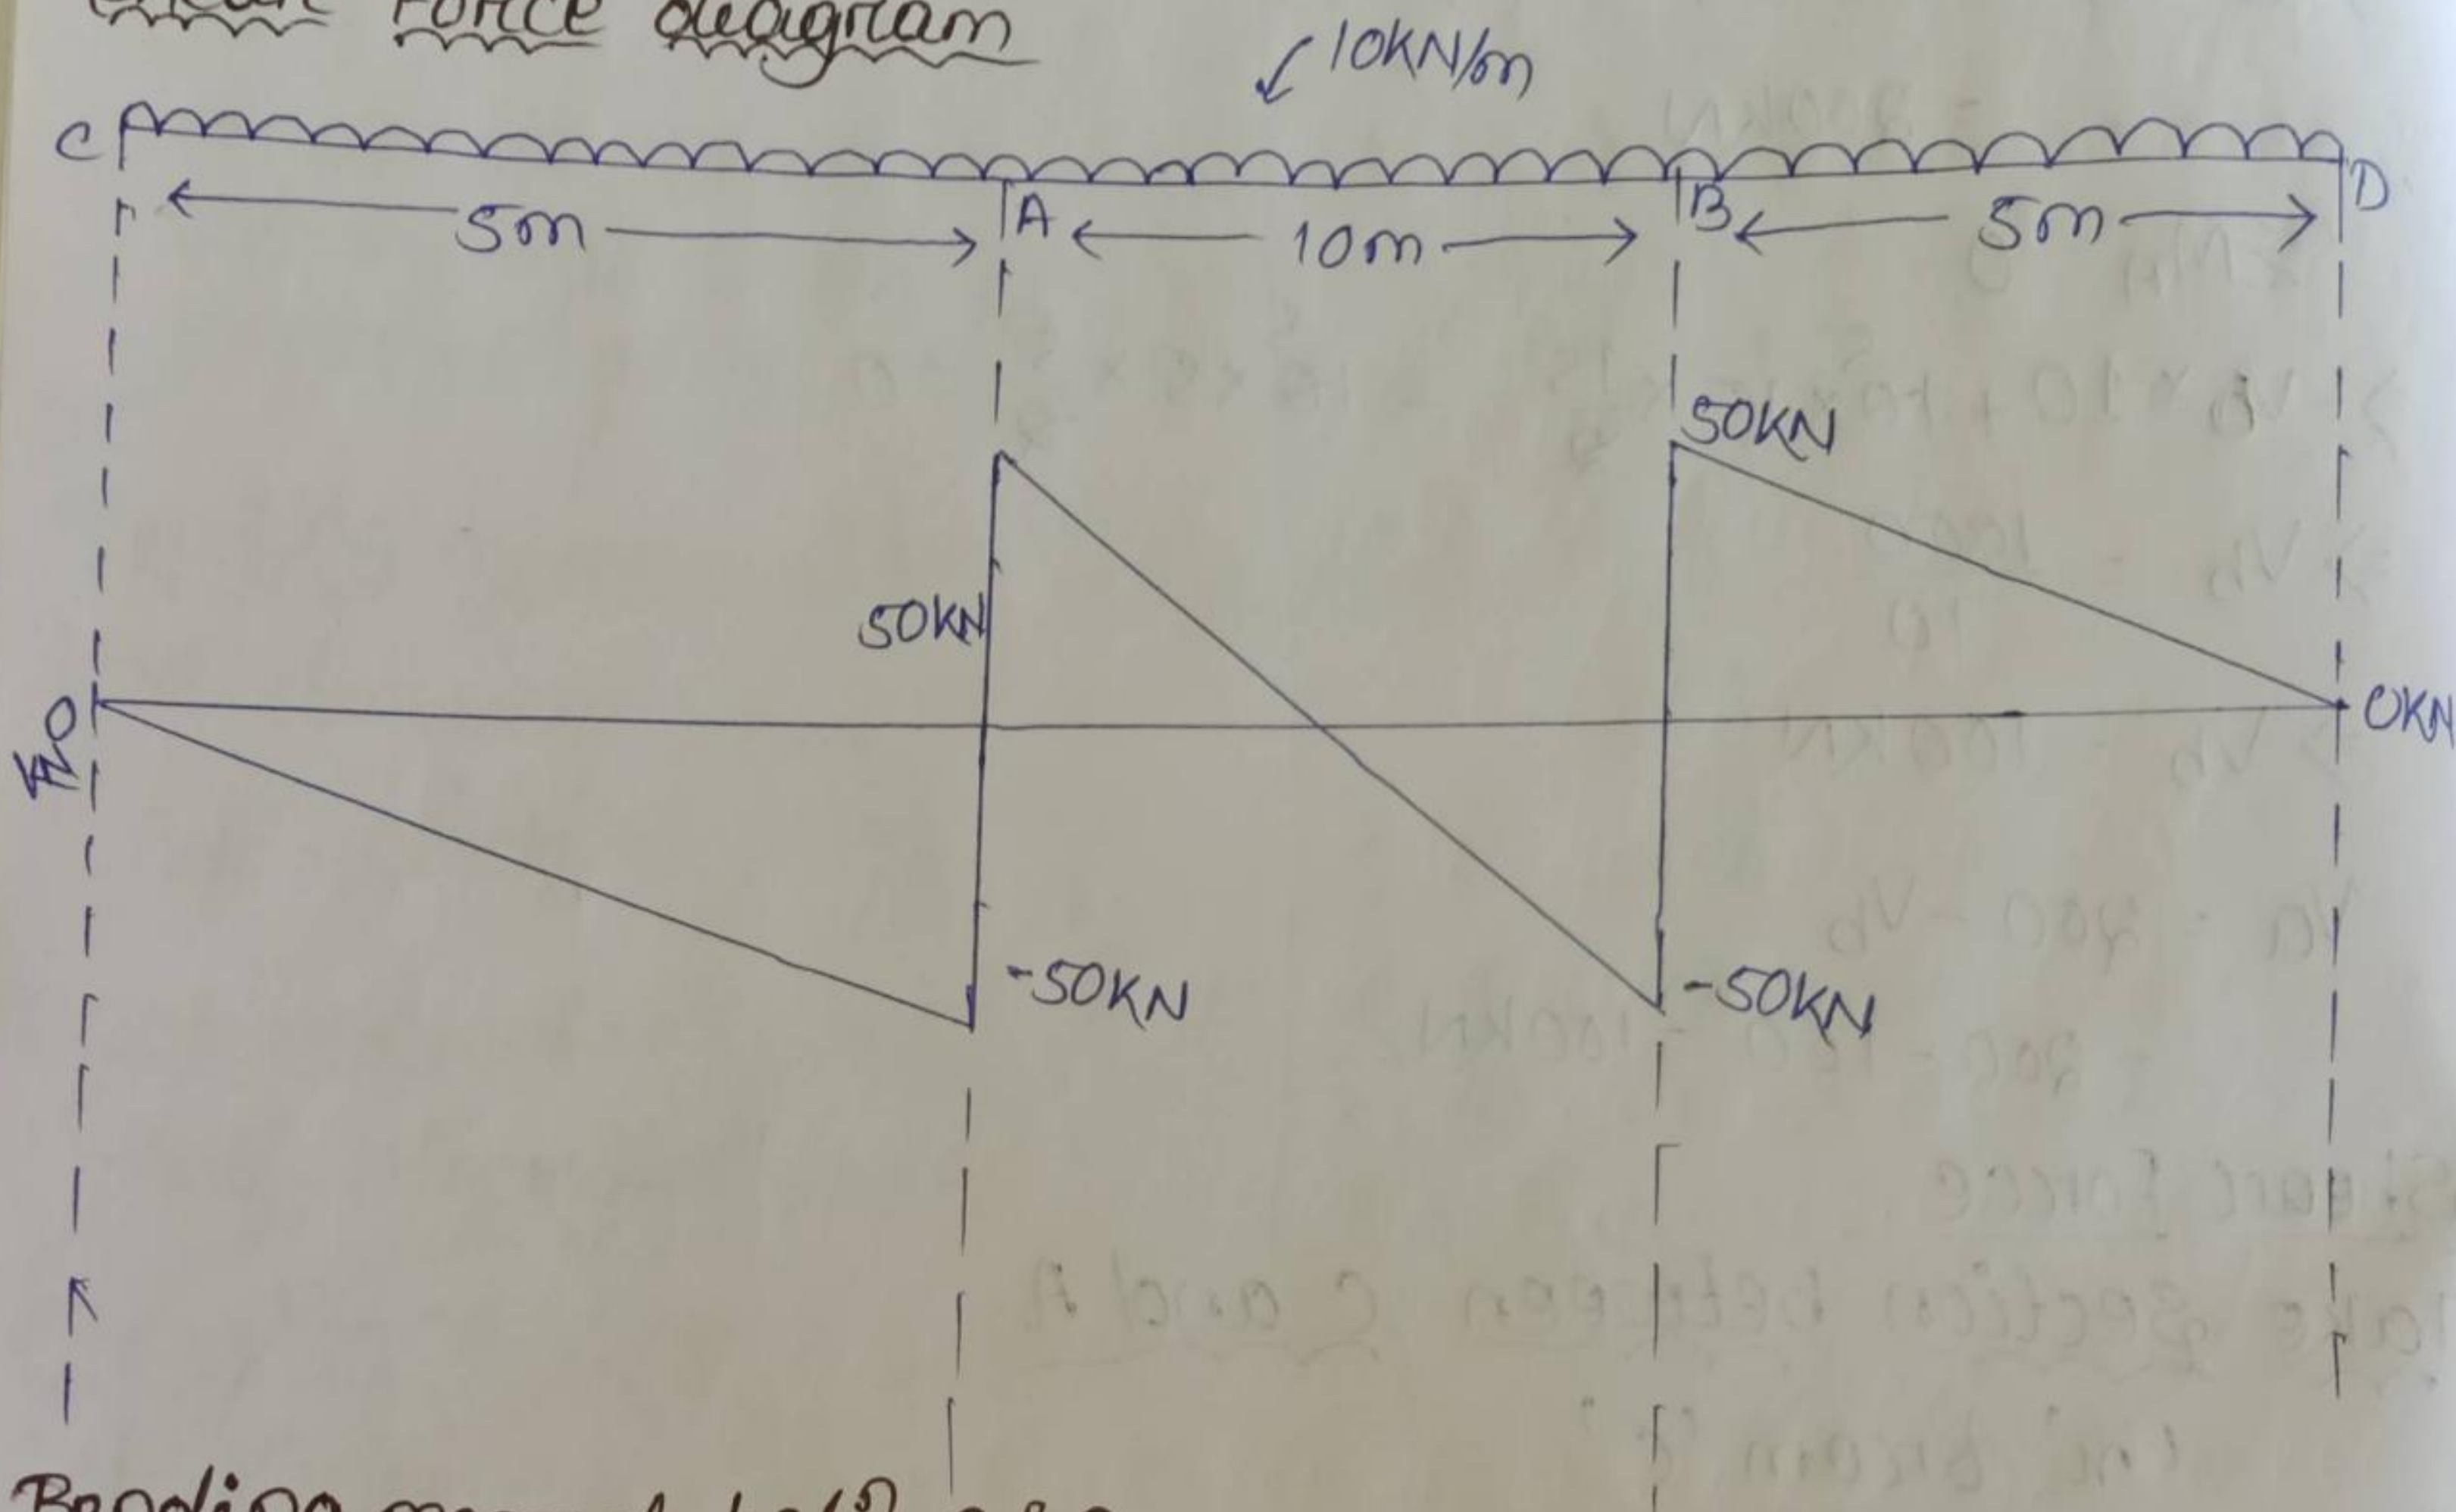 Force diagram
10KN/m
C
5m
A
10m
B
5m
D
50KN
50KN
0KN
-50KN
-50KN
Bending